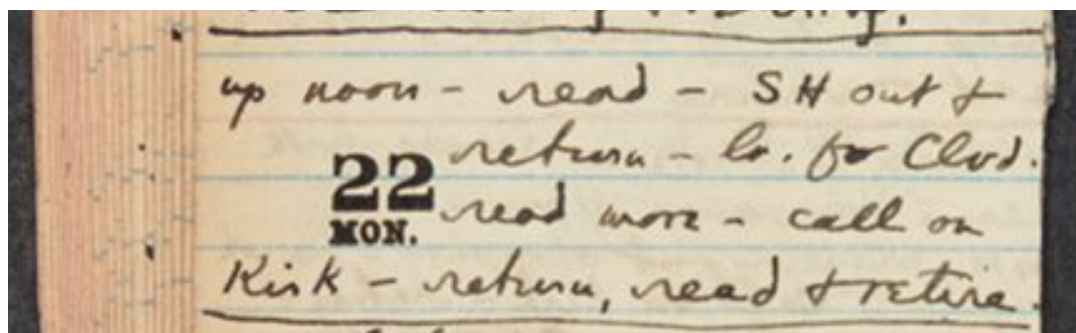 up noon - read - SH out &
return - lv. for Clvd.
22
MON.
read more - call on
Kirk - return, read & retire.